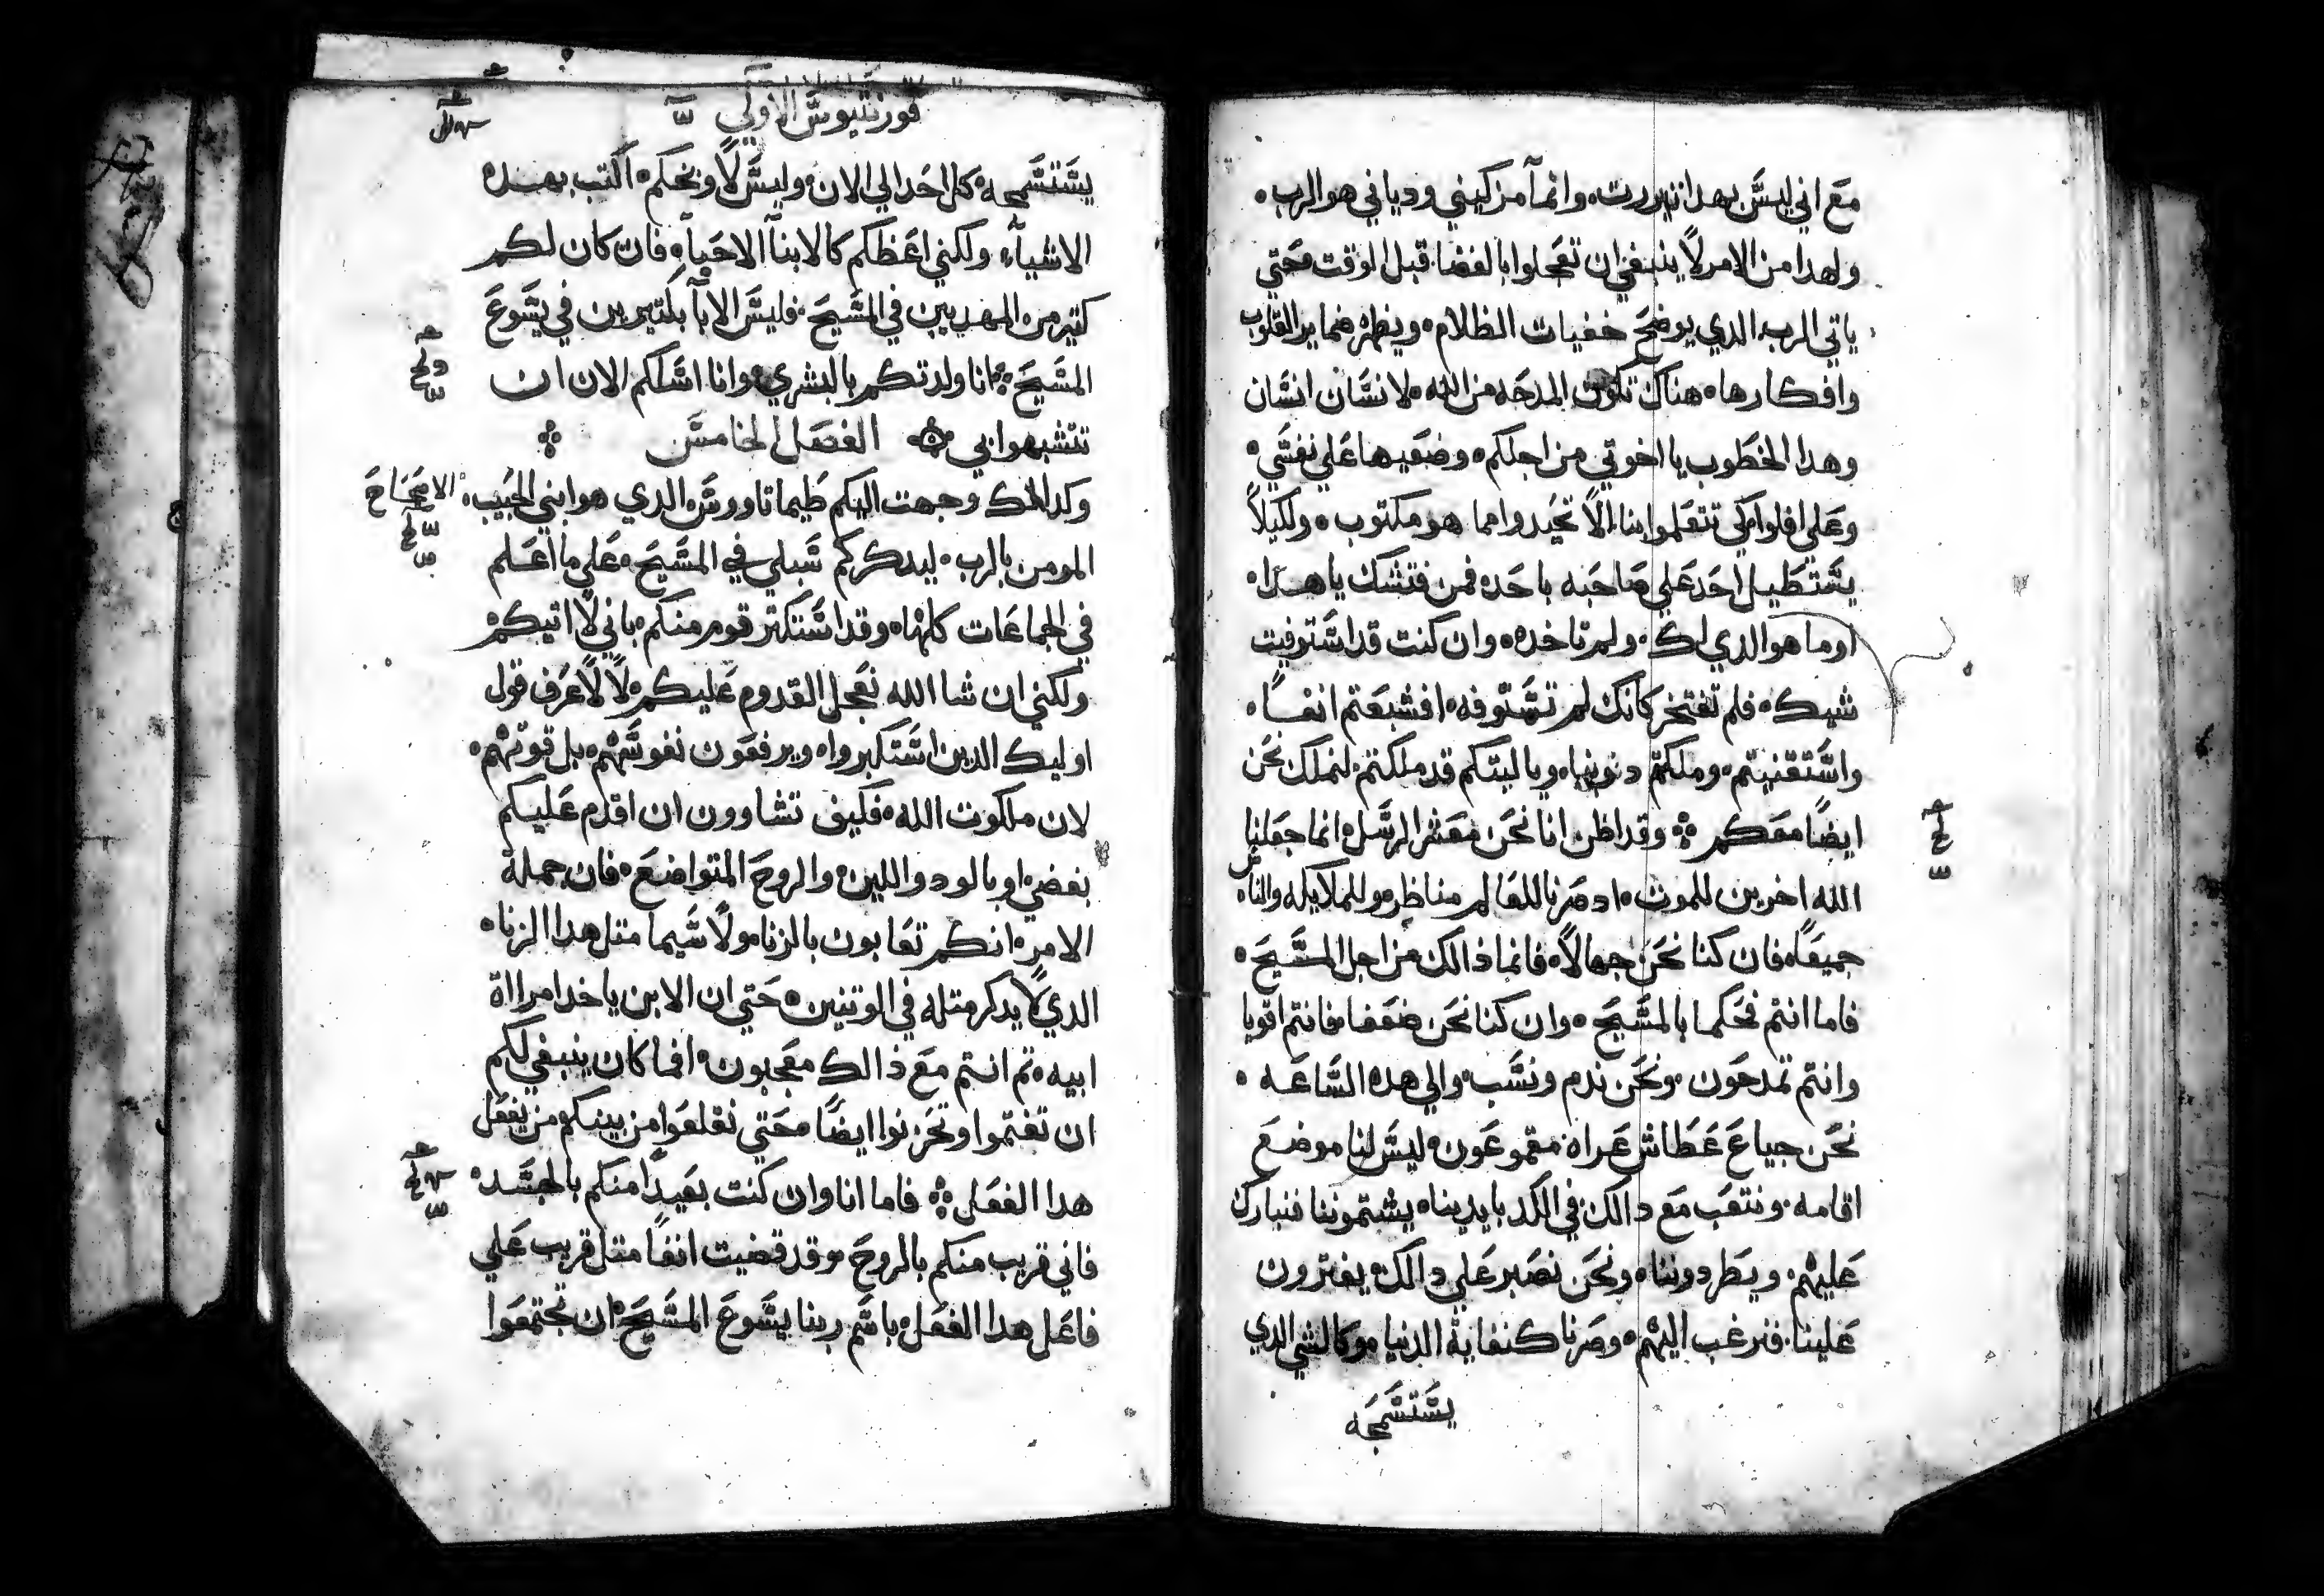 مع اني ليس بهدا تبررت وانما مزكيني ودياني هو الرب
ولهدا من الامر لا ينبغي ان تعجلوا بالقضا قبل الوقت حتي
ياتي الرب الدي يوضح خفيات الظلام ويظهر ضماير القلوب
وافكارها هناك تكون المدحه من الله لانسان انسان
وهدا الخطوب يا اخوتي من اجلكم وضعيها علي نفسي
وعلي افلوا لكي تتعلموا بنا الا تحيدوا مما هو مكتوب ولكيلا
يستطيل احد علي صاحبه باحد فمن فتشك يا هدا
او ما هو الدي لك ولم تاخده وان كنت قد استوفيت
شيك فلم تفتخر كانك لم تستوفه افشبعتم انفا
واستغنيتم وملكتم دوننا ويا ليتكم قد ملكتم لنملك نحن
ايضا معكم وقد اظن انا نحن معشر الرسل انما جعلنا
الله اخرين للموت اد صرنا للعالم مناظر وللملايكه والناس
جميعا فان كنا نحن جهالا فانما ذالك من اجل المسيح
فاما انتم فحكما بالمسيح وان كنا نحن ضعفا فانتم اقويا
وانتم تمدحون ونحن ندم ونسب والي هده الساعه
نحن جياع عطاش عراه مقموعون ليس لنا موضع
اقامه ونتعب مع دالك في الكد بايدينا يشتموننا فنبارك
عليهم ويطردوننا ونحن نصبر علي دالك يفترون
علينا فنرغب اليهم وصرنا كنفاية الدنيا وكالشي الدي
يستسمجه
قورنتيوس الاولي
يستسمجه كل احد الي الان وليس لاوبخكم اكتب بهده
الاشيآء ولكني اعظكم كالابنآ الاحبآء فان كان لكم
كتير من المهديين في المسيح فليس الابآ بكتيرين في يسوع
المسيح انا ولدتكم بالبشري وانا اسلكم الان ان
تتشبهوا بي الفصل الخامس
وكدالك وجهت اليكم طيماتاووس الدي هو ابني الحبيب
الاصحاح
المومن بالرب ليدكركم سبلي في المسيح علي ما اعلم
في الجماعات كلها وقد استكتر قوم منكم باني لا اتيكم
ولكني ان شا الله نعجل القدوم عليكم لا لاعرف قول
اوليك الدين استكبروا ويرفعون نفوسهم بل قوتهم
لان ملكوت الله فكيف تشاوون ان اقدم عليكم
بعضي او بالود واللين والروح المتواضع فان جملة
الامر انكم تعابون بالزنا ولا سيما متل هدا الزنا
الدي لا يدكر متله في الوتنين حتي ان الابن ياخد امرااة
ابيه تم انتم مع ذالك معجبون افما كان ينبغي لكم
ان تغتموا وتحزنوا ايضا حتي تقلعوا من بينكم من يفعل
هدا الفعل فاما انا وان كنت بعيدا منكم بالجسد
فاني قريب منكم بالروح وقد قضيت انفا متل قريب علي
فاعل هدا الفعل باسم ربنا يسوع المسيح ان تجتمعوا